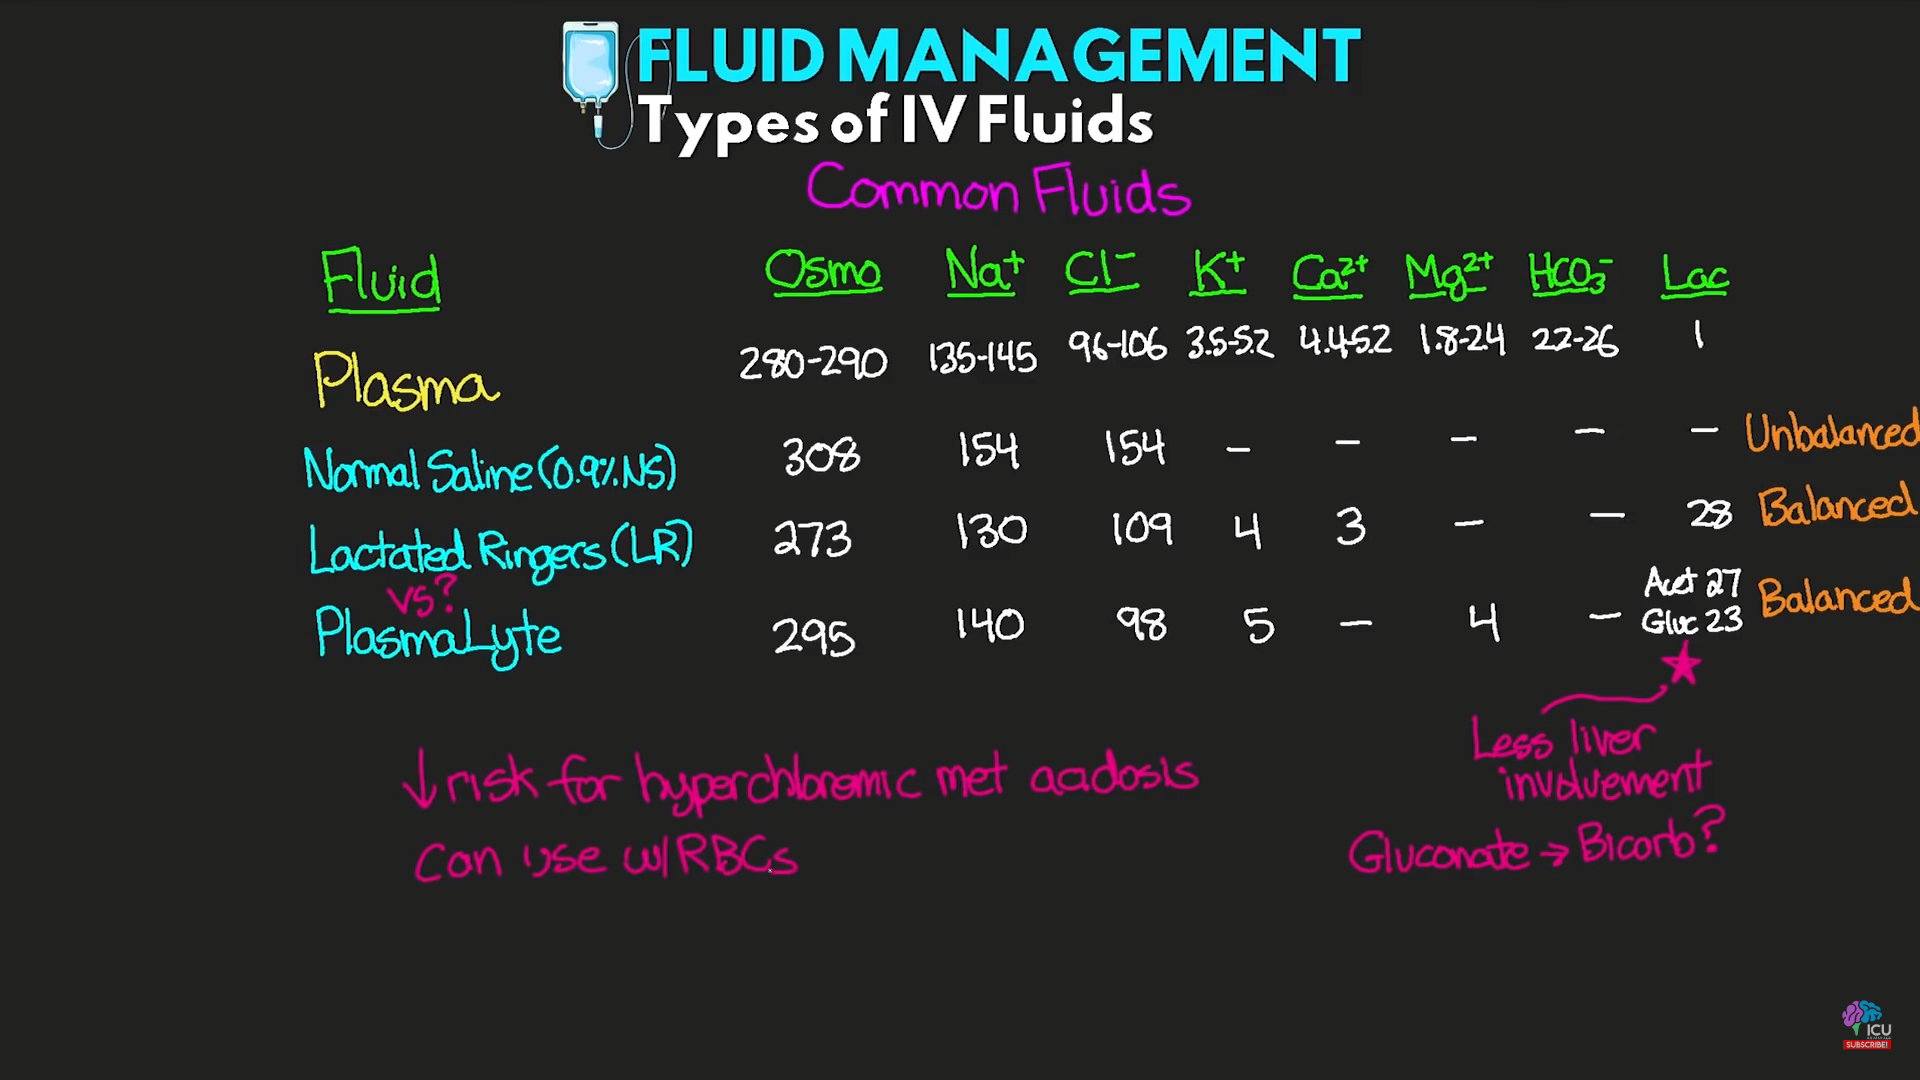 FLUID MANAGEMENT
Types of IV Fluids
Common Fluids
Fluid Osmo Na+ Cl- K+ Ca2+ Mg2+ HCO3- Lac
Plasma 280-290 135-145 96-106 3.5-5.2 4.4-5.2 1.8-2.4 22-26 1
Normal Saline (0.9% NS) 308 154 154 - - - - - Unbalanced
Lactated Ringers (LR) 273 130 109 4 3 - - 28 Balanced
vs?
PlasmaLyte 295 140 98 5 - 4 - Acet 27 Gluc 23 Balanced
↓ risk for hyperchloremic met acidosis
Can use w/ RBCs
Less liver
involvement
Gluconate → Bicorb?
ICU
SUBSCRIBE!